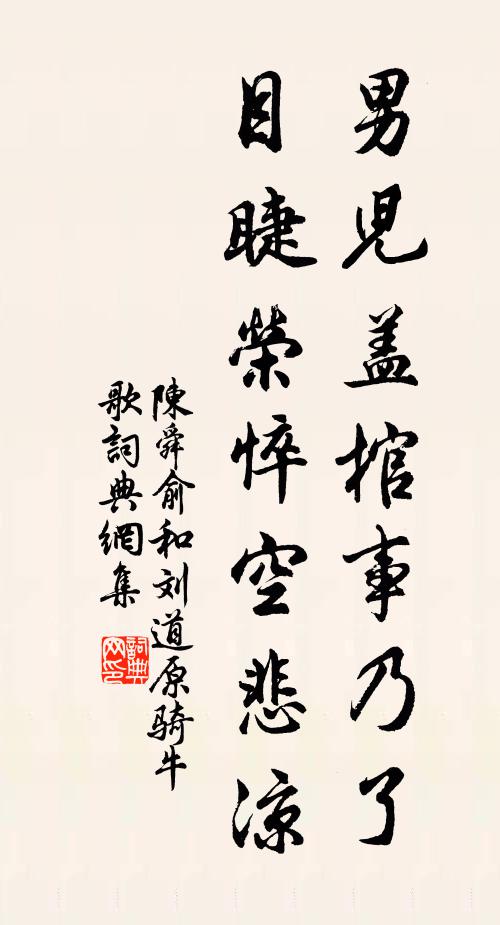 男児盖棺事乃了
目睫榮悴空悲涼
陳舜俞和刘道原骑牛
歌詞典網集
詞典网印